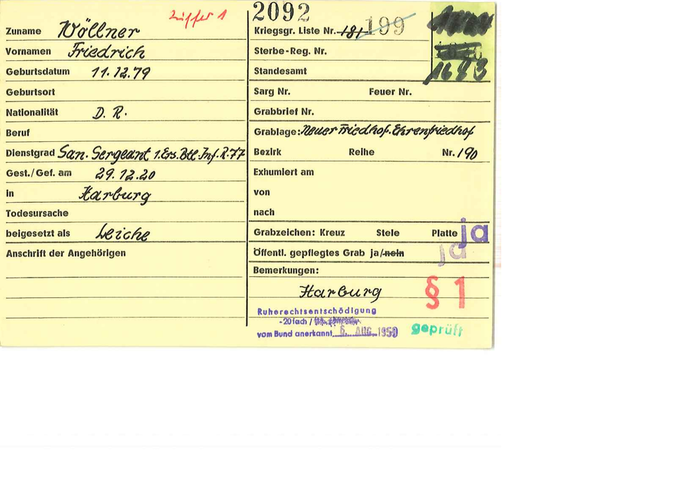 Ziffer 1
2092
Zuname Wöllner
Kriegsgr. Liste Nr. 181 199
Vornamen Friedrich
Sterbe-Reg. Nr.
Geburtsdatum 11.12.79
Standesamt
1683
Geburtsort
Sarg Nr. Feuer Nr.
Nationalität D. R.
Grabbrief Nr.
Beruf
Grablage: Neuer Friedhof. Ehrenfriedhof
Dienstgrad San. Sergeant 1. Ers. Btl. Inf. R. 77
Bezirk Reihe Nr. 190
Gest./Gef. am 29.12.20
Exhumiert am
in Harburg
von
Todesursache
nach
beigesetzt als Leiche
Grabzeichen: Kreuz Stele Platte ja
Anschrift der Angehörigen
Öffentl. gepflegtes Grab ja/nein ja
Bemerkungen:
Harburg
§ 1
Ruherechtsentschädigung
-20fach /
vom Bund anerkannt 6. AUG. 1959
geprüft